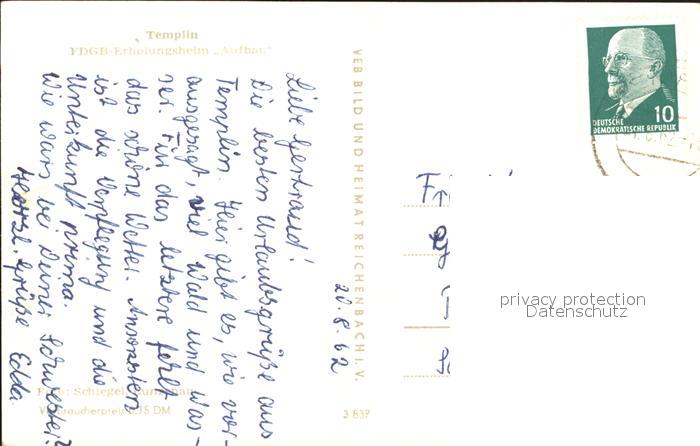 Templin
FDGB-Erholungsheim „Aufbau"
Liebe Gertraud!
Die besten Urlaubsgrüße aus
Templin. Hier gibt es, wie vor-
ausgesagt, viel Wald und Was-
ser. Für das letztere fehlt
das schöne Wetter. Ansonsten
ist die Verpflegung und die
Unterkunft prima.
Wie wars bei Deiner Schwester?
Herzl. Grüße Edda.
20.8.62
VEB BILD UND HEIMAT REICHENBACH I. V.
Foto: Schlegel
Verbraucherpreis 0,15 DM
3 837
10
DEUTSCHE
DEMOKRATISCHE REPUBLIK
privacy protection
Datenschutz